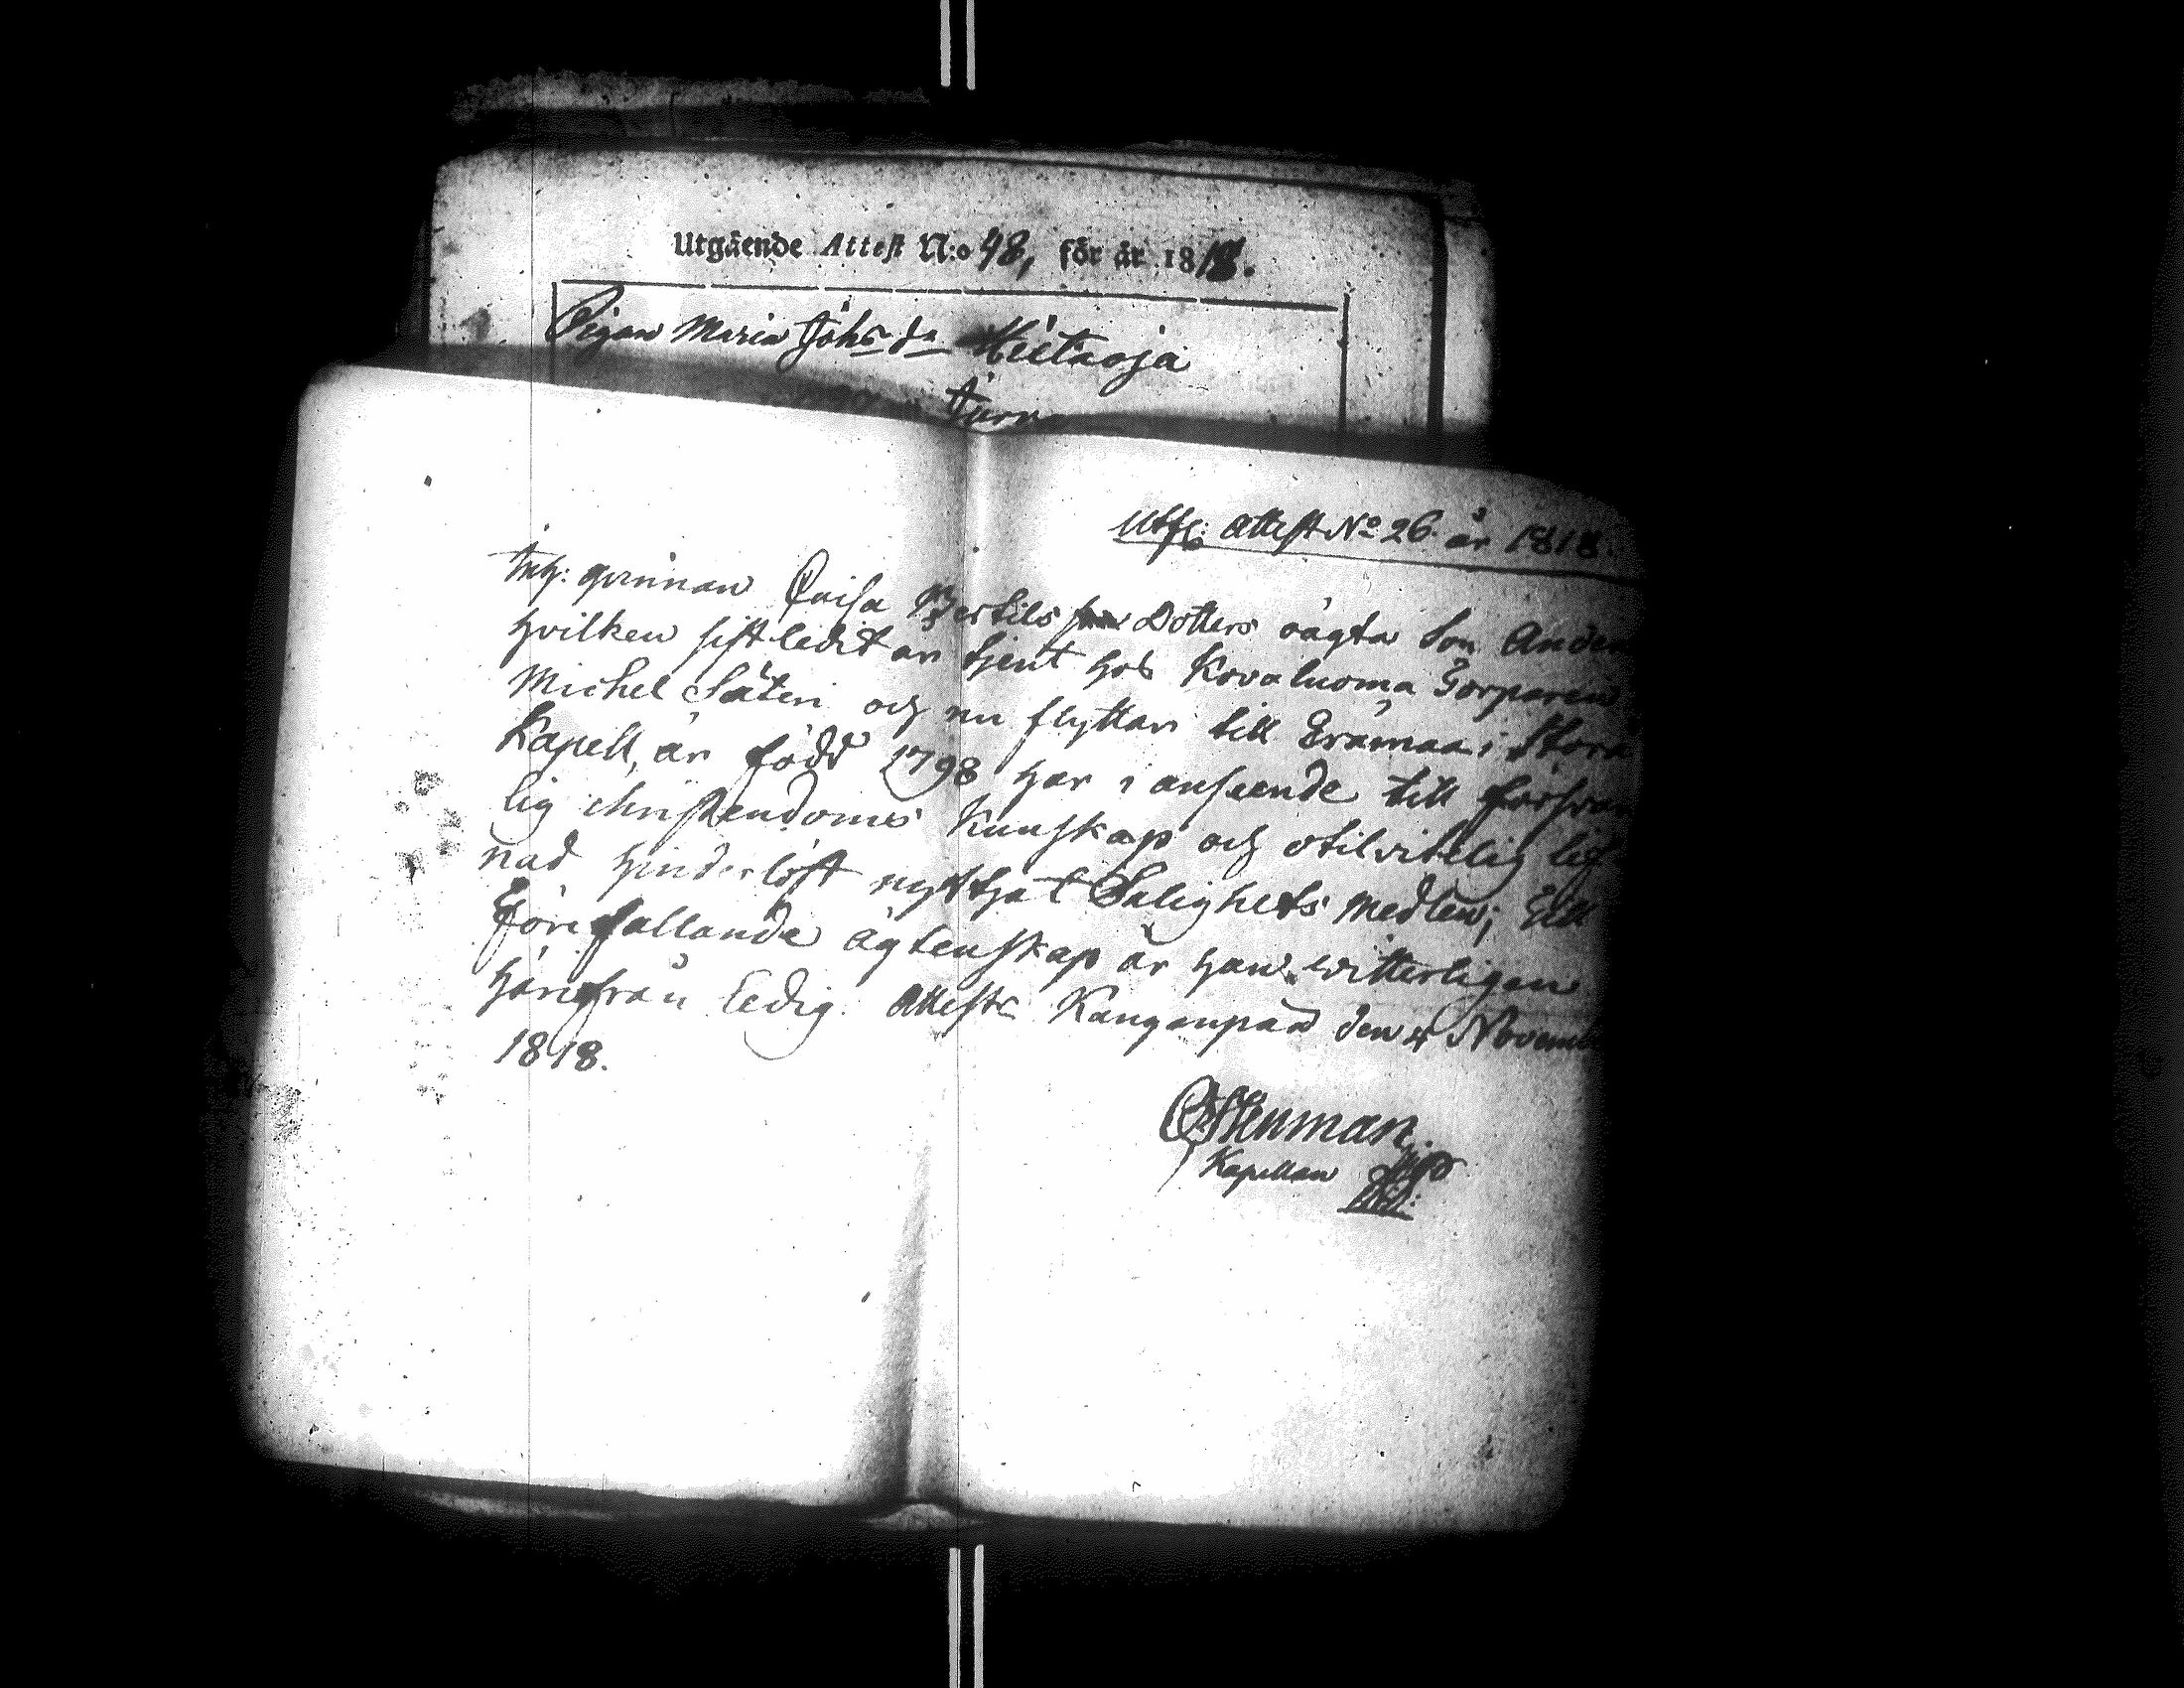 Utgående Attest N:o 48, för år 1818.
Pigan Maria Johsdr Hietaoja
Utfl: Attest No 26 år 1818.
Inh: qvinnan Caisa Bertils Dotters oägta Son Anders
hvilken sistledit år tjent hos Kovaluoma Torparen
Michel Säteri och nu flyttar till Erämaa i Storå
Kapell, är född 1798 har i anseende till försvar
lig christendoms kunskap och otilvitelig lef
nad hinderlöst nyttjat Salighets medlen; Till
förefallande ägtenskap är han witterligen
härifrån ledig. Attest: Kangånpää den 4 Novemb
1818.
Stenman.
Kapellan